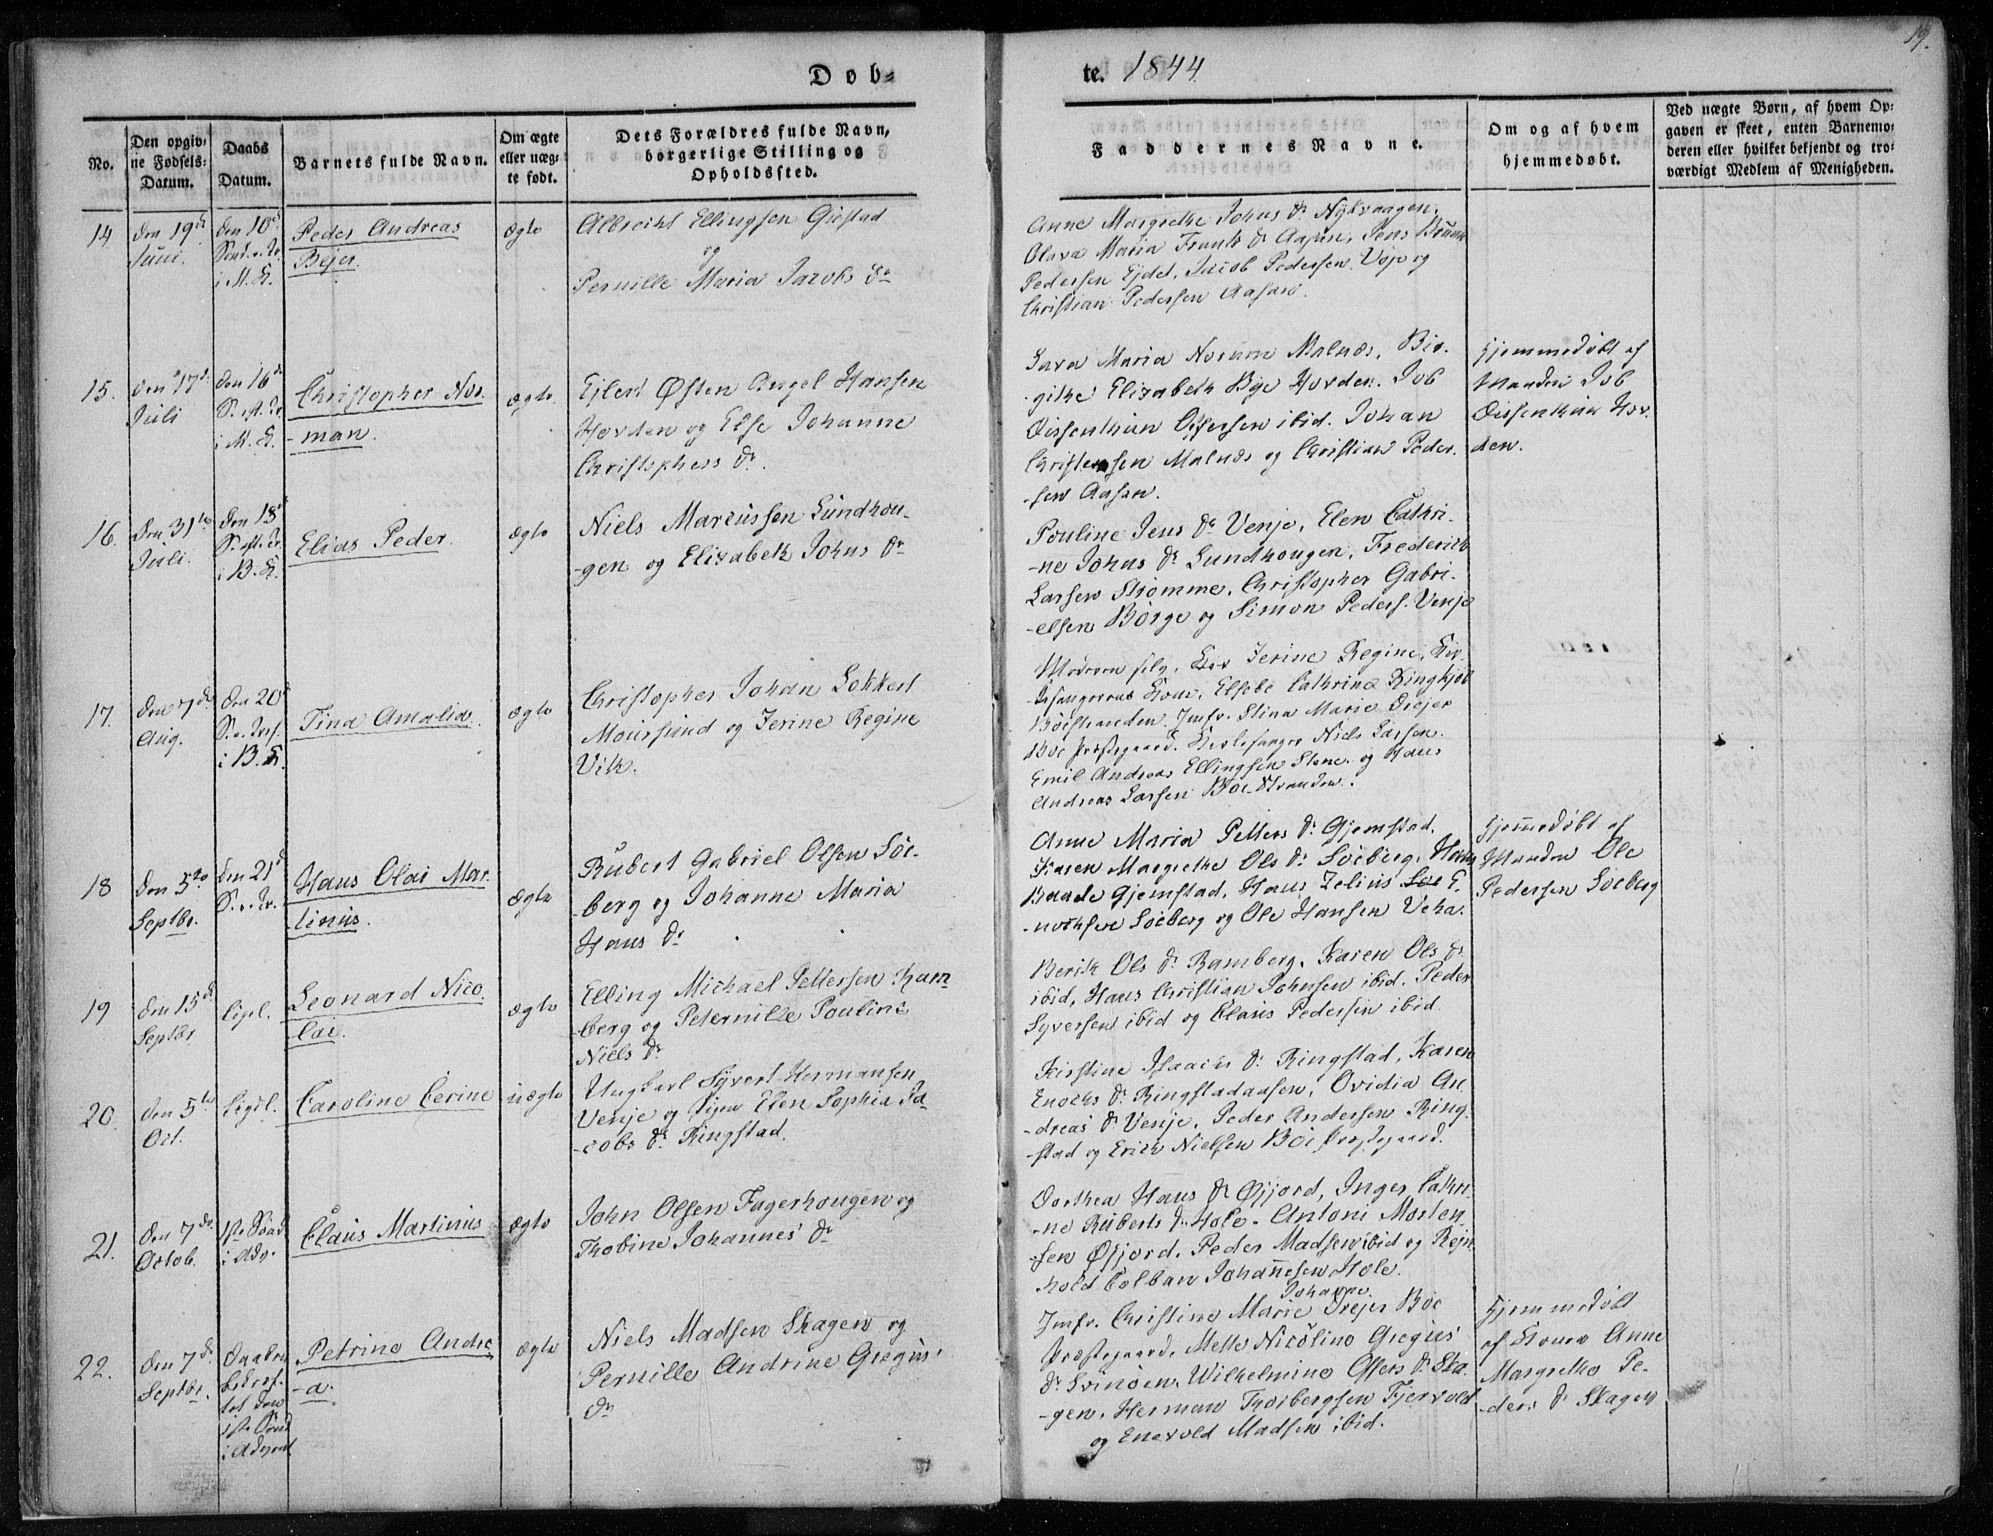 Døb=
te. 1844
19.
No.
Den opgiv-
ne Fødsels-
Datum.
Daabs
Datum.
Barnets fulde Navn.
Om ægte
eller uæg-
te født.
Dets Forældres fulde Navn,
borgerlige Stilling og
Opholdssted.
Faddernes Navne.
Om og af hvem
hjemmedøbt.
Ved uægte Børn, af hvem Op-
gaven er skeet, enten Barnemo-
deren eller hvilket bekjendt og tro-
værdigt Medlem af Menigheden.
14
den 19d
Juni.
den 10d
Sønd. e. Tr.
i M. K.
Peder Andreas
Bejer.
ægte
Albrecht Ellingsen Gustad
og
Pernille Maria Jacobs dr
Anne Margrethe Johns dr Nykvaagen.
Olava Maria Frants dr Aasan, Jens Bruun
Pedersen Ejdet, Jacob Pedersen Voje og
Christian Pedersen Aasan.
15.
den 17d
Juli
den 16d
S. eft. Tr.
i M. K.
Christopher Nor-
-man.
ægte
Ejlert Østen Angel Hansen
Horden og Else Johanne
Christophers dr.
Sara Maria Norum Malnæs, Bir-
-githe Elizabeth Bye Horden. Job
Dissenthun Offersen ibid. Johan
Christensen Malnæs og Christian Peder-
-sen Aasan.
Hjemmedøbt af
Manden Job
Dissenthun Hor-
den.
16.
den 31te
Juli.
den 18d
S. eft. Tr.
i B. K.
Elias Peder.
ægte
Niels Marcussen Sundhou-
-gen og Elizabeth Johns dr
Pouline Jens dr Venje, Elen Cathri-
-ne Johns dr Sundhougen, Frederich
Larsen Strømme, Christopher Gabri-
-elsen Börge og Simon Peders. Venje
17.
den 7de
Aug.
den 20d
S. e. Tref.
i B. K.
Tina Amalia.
ægte
Christopher Johan Lokkert
Moursund og Jerine Regine
Vik.
Moderen selv, Jerine Regine, Kir-
Kone, Elsebe Cathrina Ringkjöb
Böestranden. Jmfr. Stina Marie Dreyer
Böe Præstegaard. Kirkesanger Niels Larsen.
Emil Andreas Ellingsen Stene og Hans
Andreas Larsen Böe-Stranden.
18
den 5te
Septbr.
den 21d
S. e. Tr.
Hans Olai Mar-
-tinus.
ægte
Rubert Gabriel Olsen Söe-
-berg og Johanne Maria
Hans dr
Anne Maria Petters dr Gjemstad.
Karen Margrethe Ols dr Söeberg, Hans
Baade Gjemstad, Hans Zelius E-
-nochsen Söeberg og Ole Hansen Veha.
Hjemmedøbt af
Manden Ole
Pedersen Söeberg
19
den 15d
Septbr
ligel.
Leonard Nico-
-lai.
ægte
Elling Michael Pettersen Ram-
-berg og Peternille Pouline
Niels dr
Berith Ols dr Ramberg, Karen Ols dr
ibid, Hans Christian Johnsen ibid. Peder
Syversen ibid og Claus Pedersen ibid.
20.
den 5te
Oct.
ligel.
Caroline Cerine
uægte
Ungkarl Syvert Hermansen
Venje og Pigen Elen Sophia Ja-
-cobs dr Ringstad.
Kirstine Isaachs dr Ringstad, Karen
Enochs dr Ringstadaasen, Ovidia An-
-dreas dr Venje, Peder Andersen Ring-
stad og Erich Nielsen Böe Præstegaard.
21.
den 7de
Octob.
1ste Sönd
i Adv.
Claus Martinus
ægte
John Olsen Fagerhougen og
Thobine Johannes dr
Dorthea Hans dr Øjjord, Inger Cathri-
-ne Ruberts dr Hole. Antoni Morten-
-sen Øfjord. Peder Madsen ibid og Rejn-
hold Colban Johannesen Hole.
22.
den 7de
Septbr.
Daaben
bekræf-
tet den
1ste Sönd
i Advent
Petrine Andre
-a.
ægte
Niels Madsen Skagen og
Pernille Andrine Gregus
dr
Johanne
Jmfr. Christine Marie Drejer Böe
Præstegaard, Mette Nicoline Gregus
dr Svinöen, Wilhelmine Offers dr Ska-
-gen, Herman Thorbergsen Fjervold
og Enevold Madsen ibid.
Hjemmedøbt
af Konen Anne
Margrethe Pe-
-ders dr Skagen